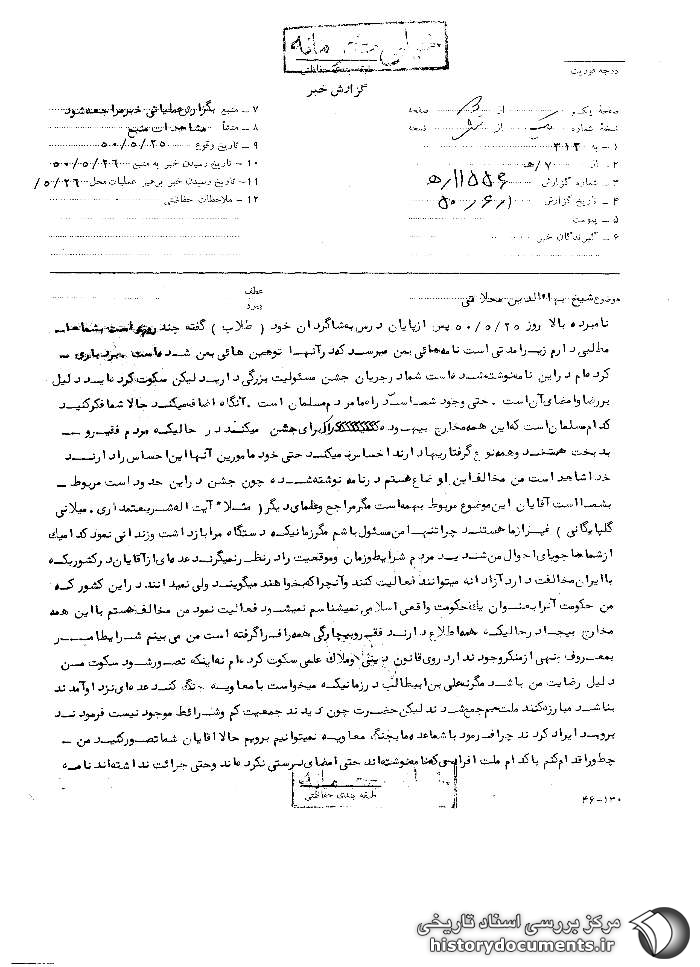 خیلی محرمانه
طبقه بندی حفاظتی
گزارش خبر
درجه فوریت
صفحه یک از صفحه
نسخه شماره یک از شش نسخه
۱ – به ۳۱۲
۲ – از ۷ / ھ
۳ – شماره گزارش ۱۱۵۵۶/ھ
۴ – تاریخ گزارش ۵۰/۶/۱
۵ – پیوست
۶ – گیرندگان خبر
۷ – منبع بگزارش عملیاتی خبر مراجعه شود
۸ – منشأ مشاهدات منبع
۹ – تاریخ وقوع ۵۰/۵/۲۵
۱۰ – تاریخ رسیدن خبر به منبع ۵۰/۵/۲۶
۱۱ – تاریخ رسیدن خبر برهبر عملیات محل ۵/۲۶/
۱۲ – ملاحظات حفاظتی
موضوع شیخ بهاالدین محلاتی
عطف
پیرو
نامبرده بالا روز ۵۰/۵/۲۵ پس از پایان درس به شاگردان خود ( طلاب ) گفته چند روزی است بشماها
مطلبی دارم زیرا مدتی است نامه هائی بمن میرسد که در آنها توهین هائی بمن شده است بردباری
کرده ام در این نامه نوشته شده است شما در جریان جشن مسئولیت بزرگی دارید لیکن سکوت کرده اید دلیل
بر رضا و امضای آن است . حتی وجود شما سد راه ما مردم مسلمان است . آنگاه اضافه میکند حالا شما فکر کنید
کدام مسلمان است که این همه مخارج بیهوده برای جشن میکنند در حالیکه مردم فقیر و
بدبخت هستند و همه نوع گرفتاریها دارند احساس میکند حتی خود مامورین آنها این احساس را دارند
خدا شاهد است من مخالف این اوضاع هستم در نامه نوشته شده چون جشن در این حدود است مربوط
بشما است آقایان این موضوع مربوط بهمه است مگر مراجع وعلمای دیگر ( مثلا آیت اله شریعتمداری . میلانی
گلپایگانی ) غیر از ما هستند چرا تنها من مسئول باشم مگر زمانیکه دستگاه مرا بازداشت وزندانی نمود کدامیک
از شماها جویای احوال من شدید مردم شرایط وزمان وموقعیت را در نظر نمیگرند عده ای از آقایان در کشوریکه
با ایران مخالفت دارد آزادانه میتوانند فعالیت کنند وآنچه را که بخواهند میگویند ولی نمیدانند در این کشور که
من حکومت آنرا به عنوان یک حکومت واقعی اسلامی نمیشناسم نمیشود فعالیت نمود من مخالف هستم با این همه
مخارج بیجا در حالیکه همه اطلاع دارند فقر وبیچارگی همه را فرا گرفته است من می بینم شرایط امر
بمعروف ونهی از منکر وجود ندارد روی قانون دینی وملاک علمی سکوت کرده ام نه اینکه تصور شود سکوت من
دلیل رضایت من باشد مگر نه علی بن ابیطالب در زمانیکه میخواست با معاویه جنگ کند عده ای نزد او آمدند
بنا شد مبارزه کنند ملت هم جمع شدند لیکن حضرت چون دیدند جمعیت کم وشرائط موجود نیست فرمودند
بروید ایراد کردند چرا فرمود با شما عده ما بجنگ معاویه نمیتوانیم برویم حالا آقایان شما تصور کنید من
چطور اقدام کنم با کدام ملت افرادی که نامه نوشته اند حتی امضای درستی نکرده اند وحتی جرائت نداشته اند نامه
طبقه بندی حفاظتی
۴۶-۱۳۰
مرکز بررسی اسناد تاریخی
historydocuments.ir